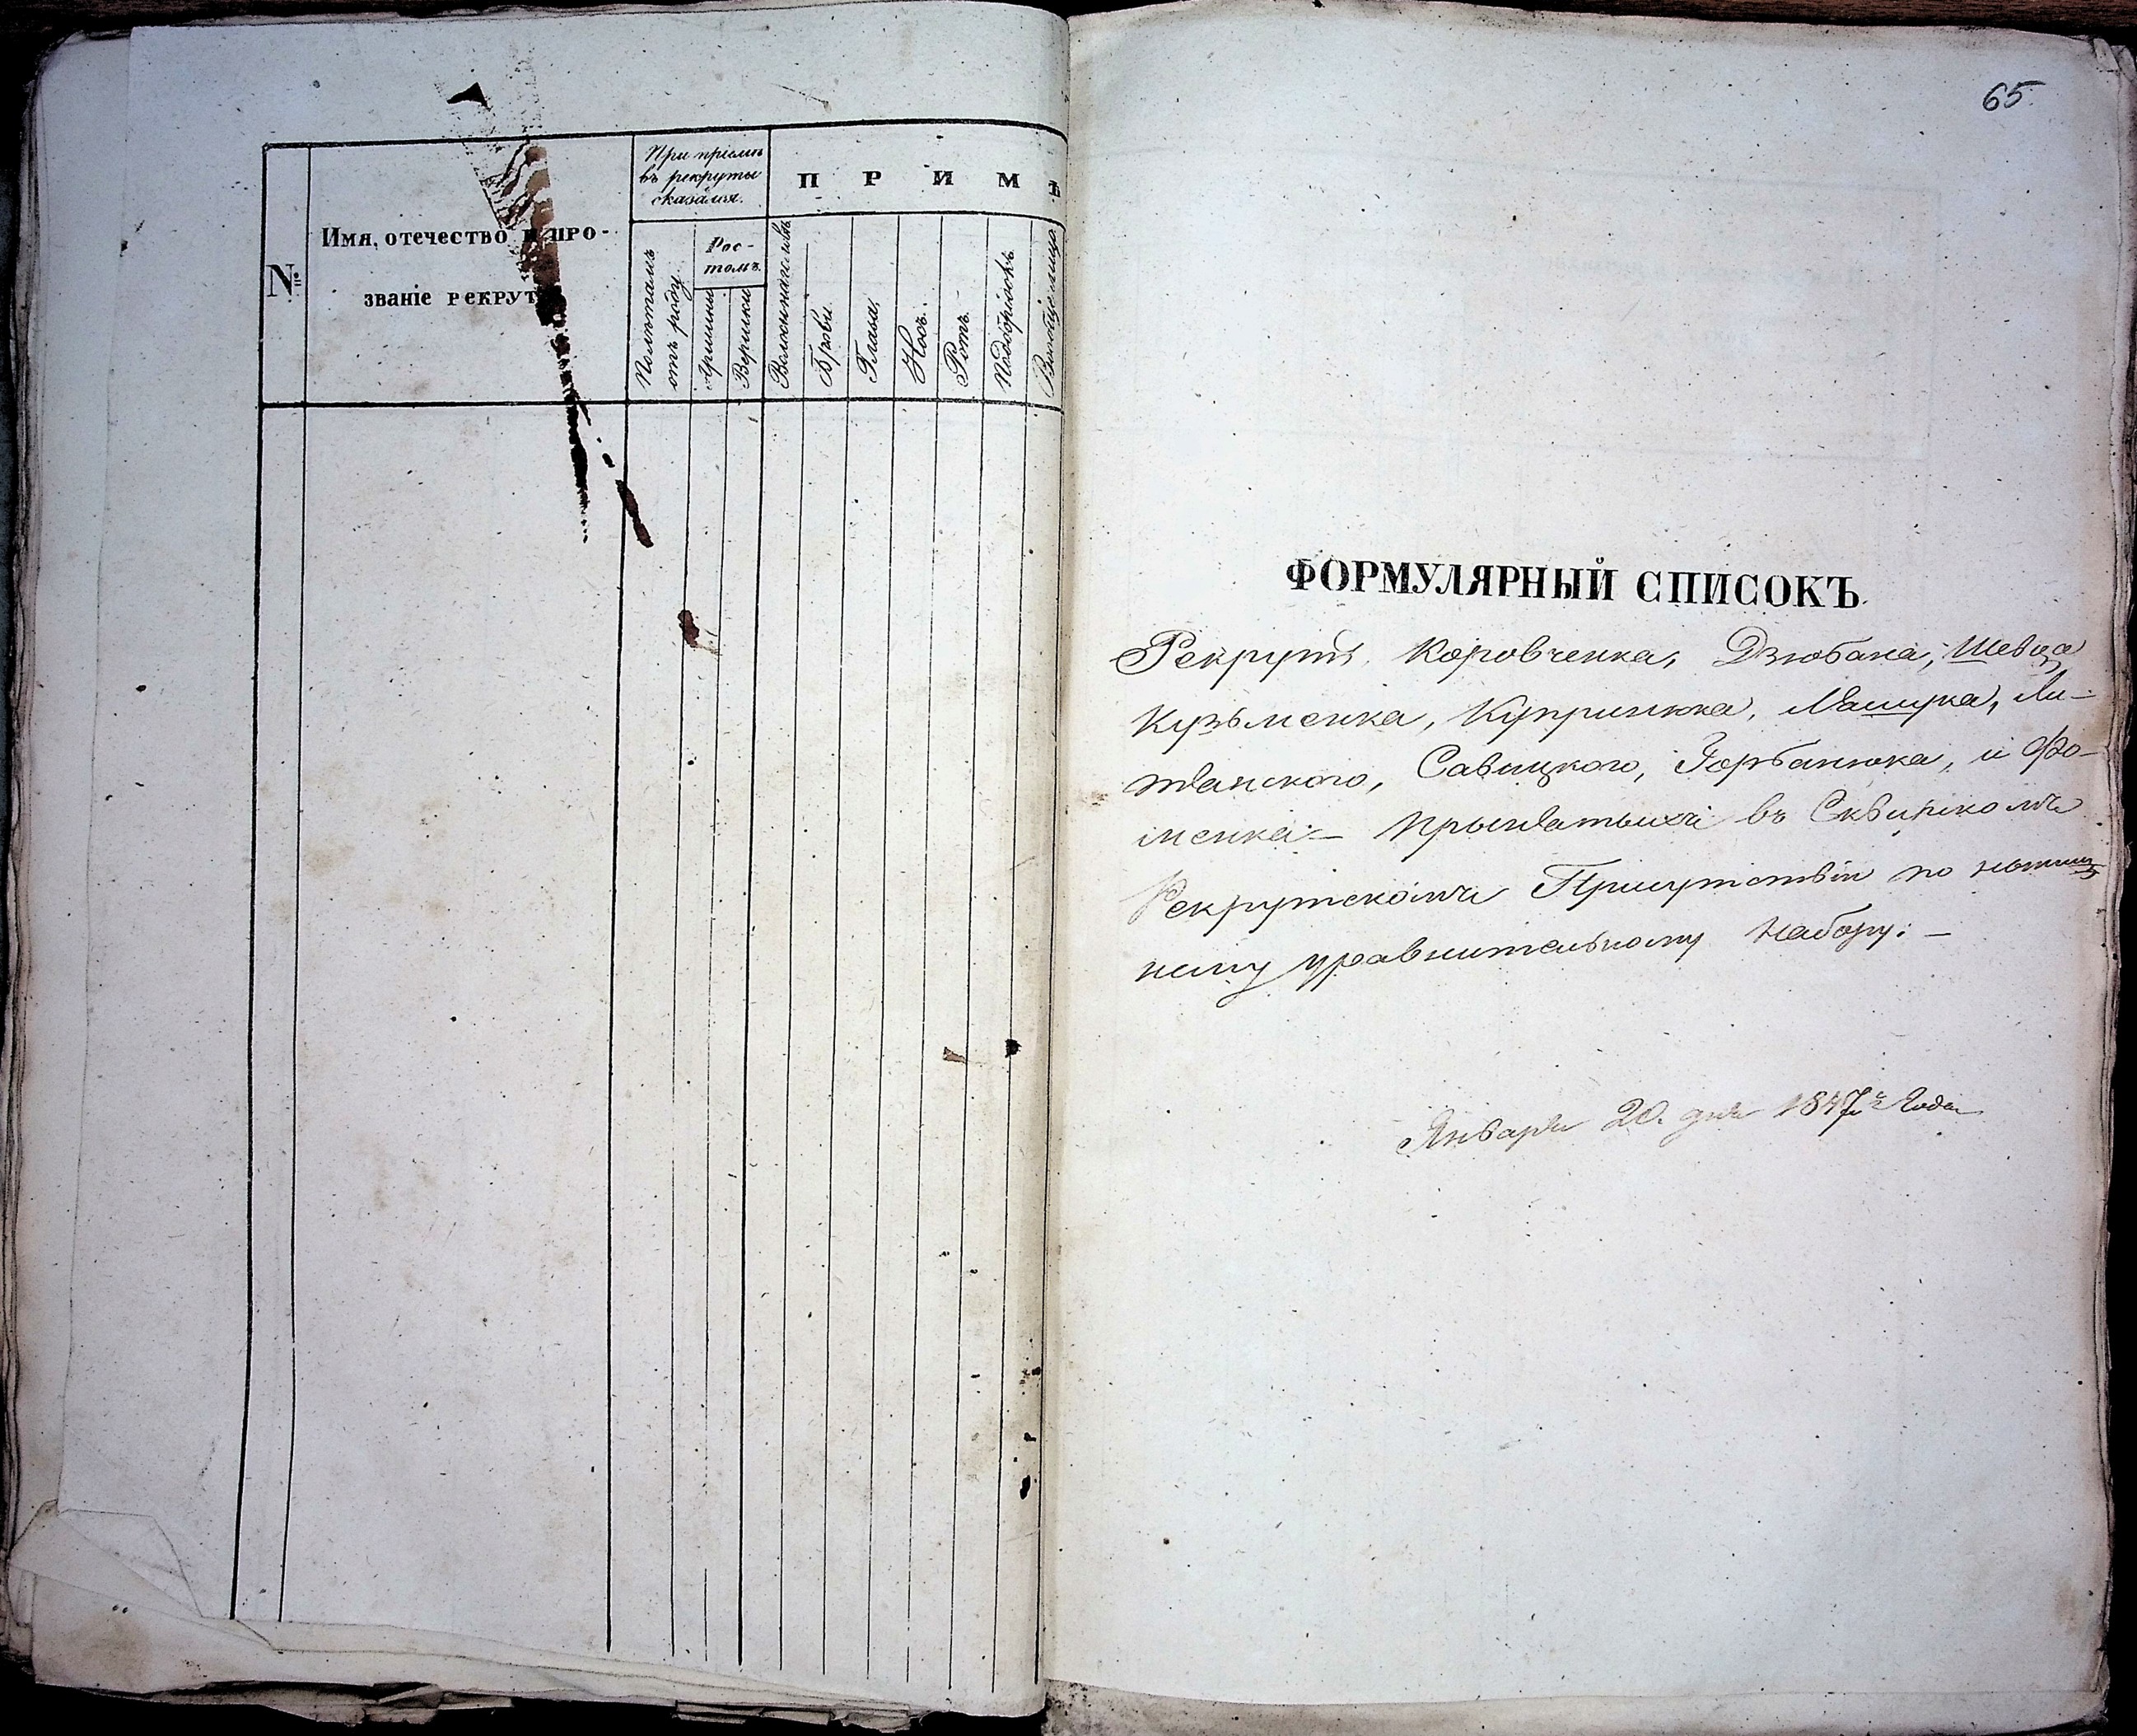 №
Имя, отечество и про-
званіе рекрут
При пріемѣ
въ рекруты
оказался.
Полѣтамъ
отъ роду.
Рос-
томъ.
Аршины
Вершки
П Р И М Ѣ
Волосы на головѣ
Брови.
Глаза.
Носъ.
Ротъ.
Подбородокъ
Вообще лицо.
65.
ФОРМУЛЯРНЫЙ СПИСОКЪ.
Рекрутъ, Коровченка, Дзюбана, Шевца
Кузьменка, Купринюка, Машука, Ли-
тванского, Савицкого, Горбанюка, и Фо-
менка:– принятыхъ въ Сквирскомъ
Рекрутскомъ Присутствіи по нынѣш
нему уравнительному Набору:–
Января 20. дня 1847го Года